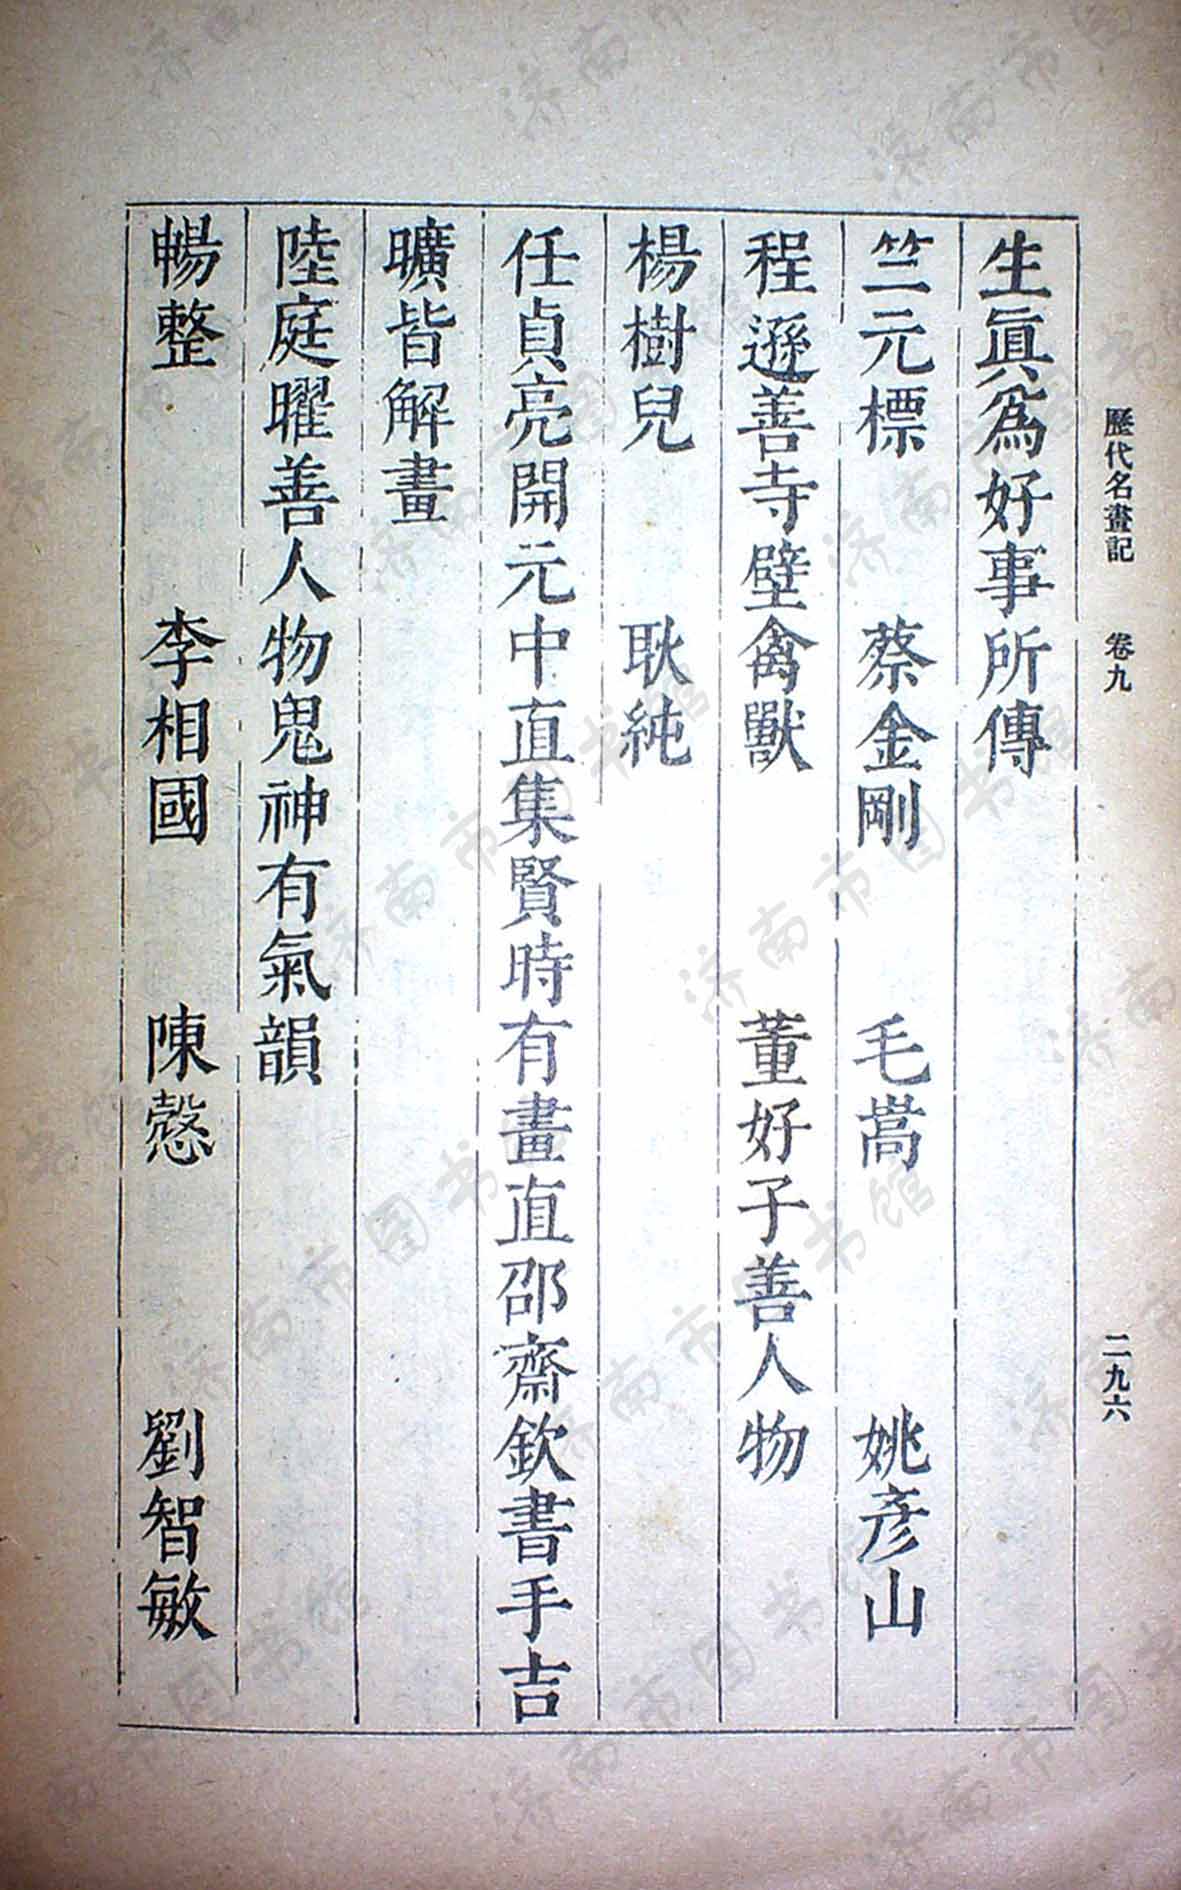 歷代名畫記　卷九　二九六
生眞爲好事所傳
竺元標　蔡金剛　毛嵩　姚彥山
程遜善寺壁禽獸　董好子善人物
楊樹兒　耿純
任貞亮開元中直集賢時有畫直邵齋欽書手吉
曠皆解畫
陸庭曜善人物鬼神有氣韻
暢整　李相國　陳慤　劉智敏
济南市图书馆